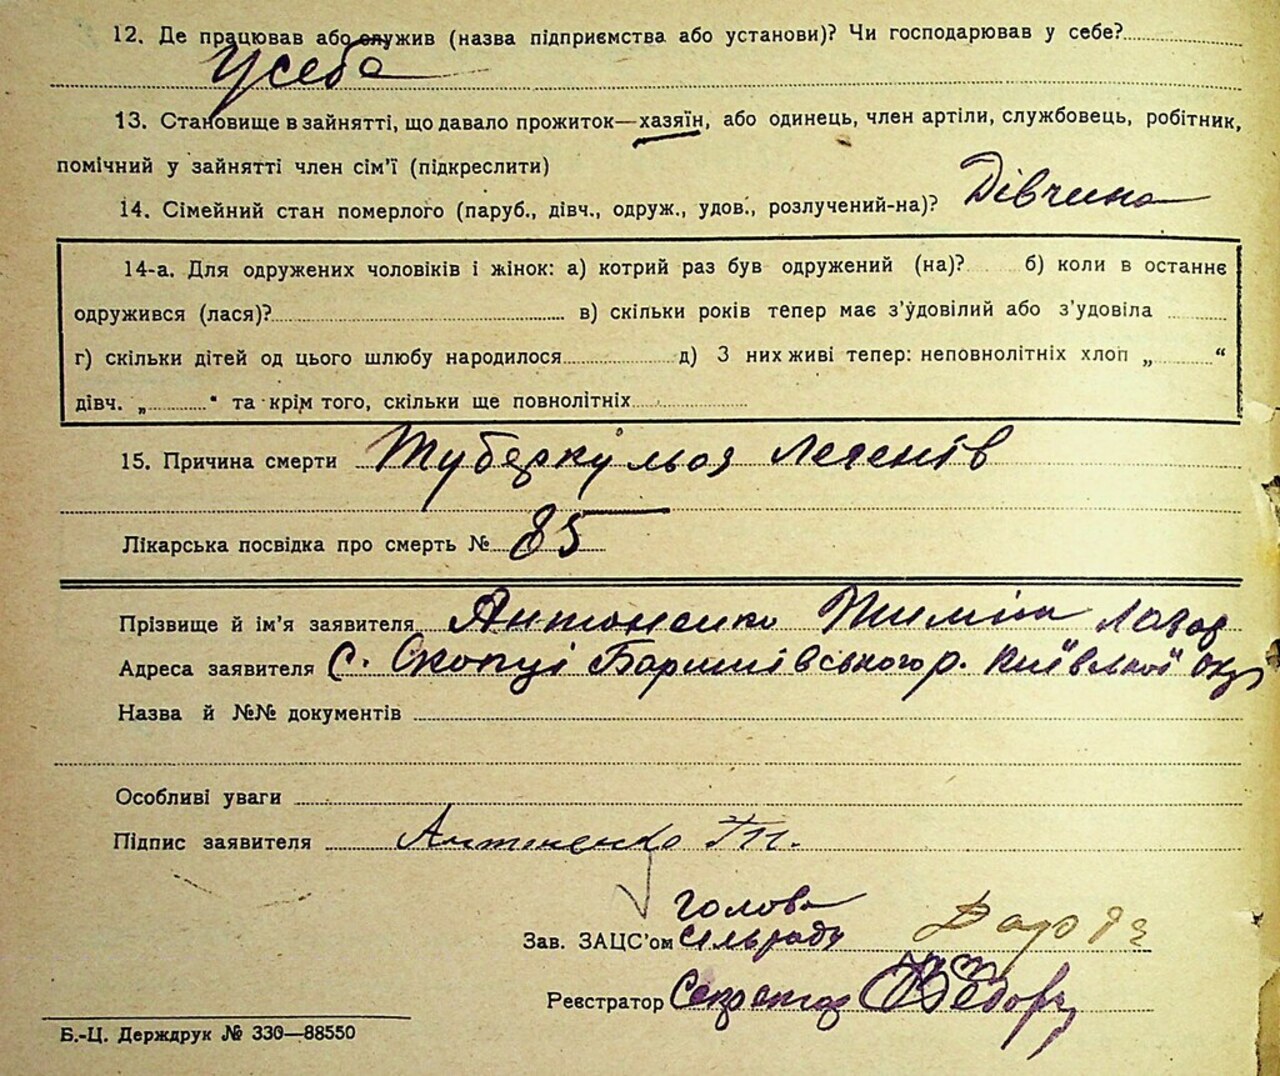 12. Де працював або служив (назва підприємства або установи)? Чи господарював у себе?
У себе
13. Становище в зайнятті, що давало прожиток—хазяїн, або одинець, член артіли, службовець, робітник,
помічний у зайнятті член сім'ї (підкреслити)
14. Сімейний стан померлого (паруб., дівч., одруж., удов., розлучений-на)? Дівчина
14-а. Для одружених чоловіків і жінок: а) котрий раз був одружений (на)? б) коли в останнє
одружився (лася)? в) скільки років тепер має з'удовілий або з'удовіла
г) скільки дітей од цього шлюбу народилося д) З них живі тепер: неповнолітніх хлоп „ “
дівч. „ “ та крім того, скільки ще повнолітніх
15. Причина смерти Туберкульоз легенів
Лікарська посвідка про смерть № 85
Прізвище й ім'я заявителя Антоненко Тиміш Лазар
Адреса заявителя С. Скопці Баришівського р. Київської окр
Назва й №№ документів
Особливі уваги
Підпис заявителя Антоненко
Голова
Зав. ЗАЦС'ом сільради
Реєстратор Секретар
Б.-Ц. Держдрук № 330—88550